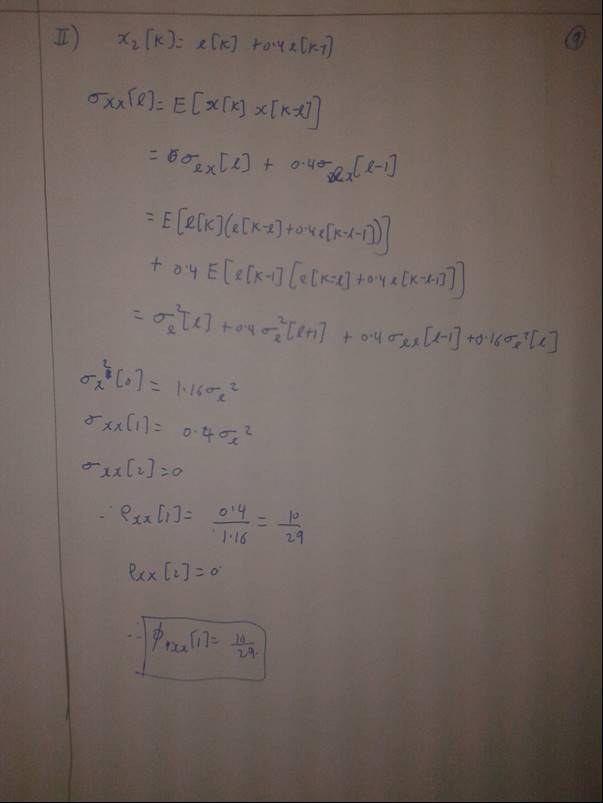 II) x₂[k] = e[k] + 0.4e[k-1]
σxx[l] = E[x[k] x[k-l]]
= σex[l] + 0.4σex[l-1]
= E[e[k](e[k-l] + 0.4e[k-l-1])]
+ 0.4 E[e[k-1][e[k-l] + 0.4e[k-l-1]]]
= σe²[l] + 0.4σe²[l+1] + 0.4σee[l-1] + 0.16σe²[l]
σx²[0] = 1.16σe²
σxx[1] = 0.4σe²
σxx[2] = 0
∴ ρxx[1] = 0.4/1.16 = 10/29
ρxx[2] = 0
∴ φxx[1] = 10/29